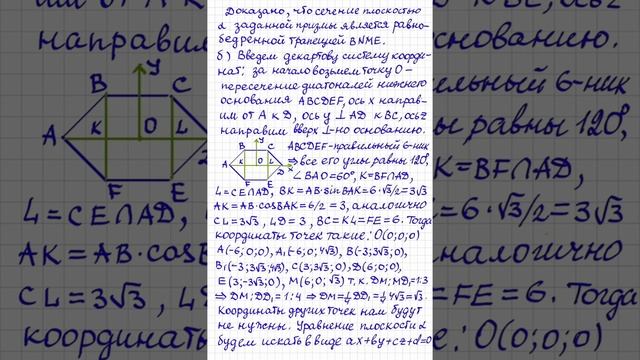 Доказано, что сечение плоскостью
α заданной призмы является равно-
бедренной трапецией BNME.
б) Введем декартову систему коорди-
нат: за начало возьмем точку O -
пересечение диагоналей нижнего
основания ABCDEF, ось x направ-
им от A к D, ось y ⊥ AD к BC, ось z
направим вверх ⊥-но основанию.
y
B C
A K O L D x
F E
ABCDEF-правильный 6-ник
⇒ все его углы равны 120°,
∠BAO=60°, K=BF∩AD,
L=CE∩AD, BK=AB·sinBAK=6·√3/2=3√3
AK=AB·cosBAK=6/2=3, аналогично
CL=3√3, LD=3, BC=KL=FE=6. Тогда
координаты точек такие: O(0;0;0)
A(-6;0;0), A₁(-6;0;4√3), B(-3;3√3;0),
B₁(-3;3√3;4√3), C(3;3√3;0), D(6;0;0),
E(3;-3√3;0), M(6;0;√3) т.к. DM:MD₁=1:3
⇒ DM:DD₁=1:4 ⇒ DM=¼DD₁=¼4√3=√3.
Координаты других точек нам будут
не нужны. Уравнение плоскости α
будем искать в виде ax+by+cz+d=0
направим
y
B C
A K O L
F E
L=CE∩AD,
AK=AB·cosB
CL=3√3, L
координаты
основанию.
ьный 6-ник
ы равны 120°,
∩AD,
=6·√3/2=3√3
аналогично
=FE=6. Тогда
: O(0;0;0)